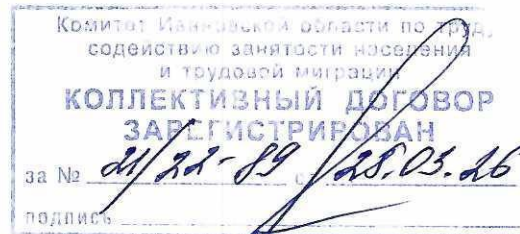 Комитет Ивановской области по труду,
содействию занятости населения
и трудовой миграции
КОЛЛЕКТИВНЫЙ ДОГОВОР
ЗАРЕГИСТРИРОВАН
за № 21/22-89 с 25.03.26
подпись